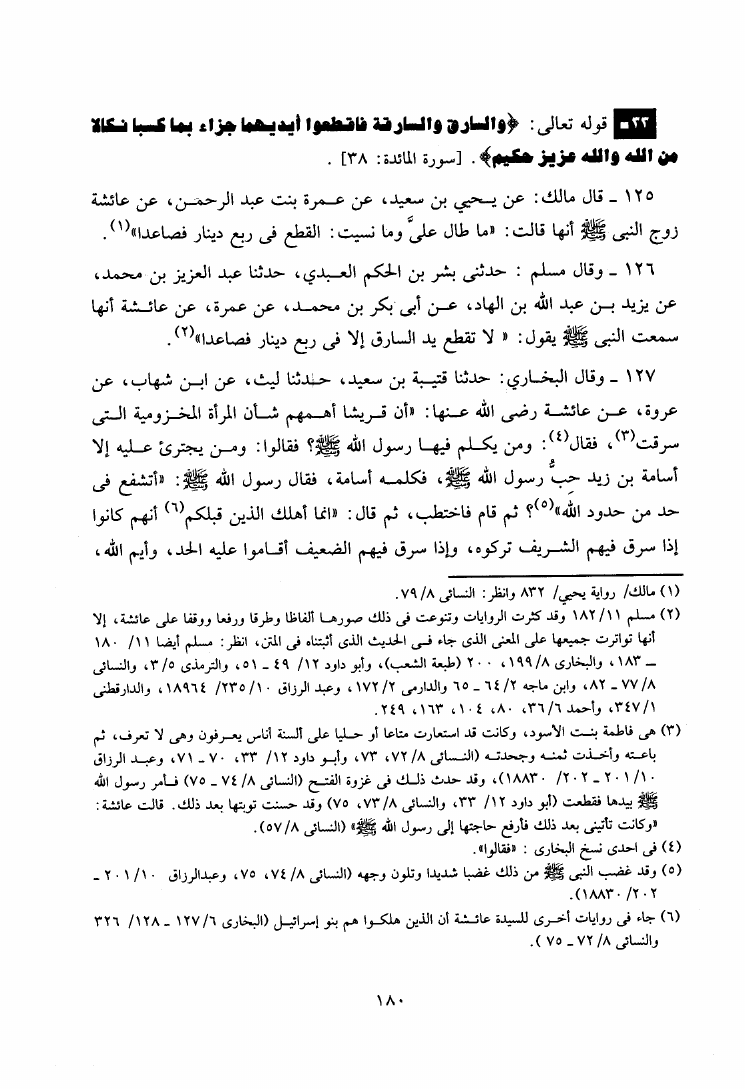 ٢٢ـ قوله تعالى: ﴿والسارق والسارقة فاقطعوا أيديهما جزاء بما كسبا نكالا
من الله والله عزيز حكيم﴾. [سورة المائدة: ٣٨] .
١٢٥ ـ قال مالك: عن يحيي بن سعيد، عن عمرة بنت عبد الرحمن، عن عائشة
زوج النبى ﷺ أنها قالت: «ما طال علىَّ وما نسيت: القطع فى ربع دينار فصاعدا»(١).
١٢٦ ـ وقال مسلم : حدثنى بشر بن الحكم العبدي، حدثنا عبد العزيز بن محمد،
عن يزيد بن عبد الله بن الهاد، عن أبى بكر بن محمد، عن عمرة، عن عائشة أنها
سمعت النبى ﷺ يقول: « لا تقطع يد السارق إلا فى ربع دينار فصاعدا»(٢).
١٢٧ ـ وقال البخاري: حدثنا قتيبة بن سعيد، حدثنا ليث، عن ابن شهاب، عن
عروة، عن عائشة رضى الله عنها: «أن قريشا أهمهم شأن المرأة المخزومية التى
سرقت(٣)، فقال(٤): ومن يكلم فيها رسول الله ﷺ؟ فقالوا: ومن يجترئ عليه إلا
أسامة بن زيد حِبُّ رسول الله ﷺ، فكلمه أسامة، فقال رسول الله ﷺ: «أتشفع فى
حد من حدود الله»(٥)؟ ثم قام فاختطب، ثم قال: «انما أهلك الذين قبلكم(٦) أنهم كانوا
إذا سرق فيهم الشريف تركوه، وإذا سرق فيهم الضعيف أقاموا عليه الحد، وأيم الله،
(١) مالك/ رواية يحيي/ ٨٣٢ وانظر: النسائى ٧٩/٨.
(٢) مسلم ١٨٢/١١ وقد كثرت الروايات وتنوعت فى ذلك صورها ألفاظا وطرقا ورفعا ووقفا على عائشة، إلا
أنها تواترت جميعها على المعنى الذى جاء فى الحديث الذى أثبتناه فى المتن، انظر: مسلم أيضا ١١/ ١٨٠
ـ ١٨٣، والبخارى ١٩٩/٨، ٢٠٠ (طبعة الشعب)، وأبو داود ١٢/ ٤٩ ـ ٥١، والترمذى ٣/٥، والنسائى
٧٧/٨ ـ ٨٢، وابن ماجه ٦٤/٢ ـ ٦٥ والدارمى ١٧٢/٢، وعبد الرزاق ٢٣٥/١٠/ ١٨٩٦٤، والدارقطنى
٣٤٧/١، وأحمد ٣٦/٦، ٨٠، ١٠٤، ١٦٣، ٢٤٩.
(٣) هى فاطمة بنت الأسود، وكانت قد استعارت متاعا أو حليا على ألسنة أناس يعرفون وهى لا تعرف، ثم
باعته وأخذت ثمنه وجحدته (النسائى ٧٢/٨، ٧٣، وأبو داود ١٢/ ٣٣، ٧٠ ـ ٧١، وعبد الرزاق
٢٠١/١٠ ـ ٢٠٢/ ١٨٨٣٠)، وقد حدث ذلك فى غزوة الفتح (النسائى ٧٤/٨ ـ ٧٥) فأمر رسول الله
ﷺ بيدها فقطعت (أبو داود ١٢/ ٣٣، والنسائى ٧٣/٨، ٧٥) وقد حسنت توبتها بعد ذلك. قالت عائشة:
«وكانت تأتينى بعد ذلك فأرفع حاجتها إلى رسول الله ﷺ» (النسائى ٥٧/٨).
(٤) فى احدى نسخ البخارى : «فقالوا».
(٥) وقد غضب النبى ﷺ من ذلك غضبا شديدا وتلون وجهه (النسائى ٧٤/٨، ٧٥، وعبدالرزاق ٢٠١/١٠ ـ
٢٠٢/ ١٨٨٣٠).
(٦) جاء فى روايات أخرى للسيدة عائشة أن الذين هلكوا هم بنو إسرائيل (البخارى ١٢٧/٦ ـ ١٢٨/ ٣٢٦
والنسائى ٧٢/٨ ـ ٧٥ ).
١٨٠